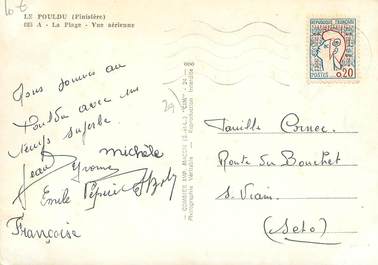 10 €
LE POULDU (Finistère)
685 A - La Plage - Vue aérienne
Nous sommes au
Pouldu avec un
temps superbe.
michèle
Jean Yvonne
Emile
Françoise
COMBIER IMP. MACON (S.-&-L.) "CIM"
Photographie Véritable - Reproduction Interdite
29
REPUBLIQUE FRANÇAISE
POSTES 0,20
Famille Cornec
Route du Bouchet
S. Viaud
(Seto)